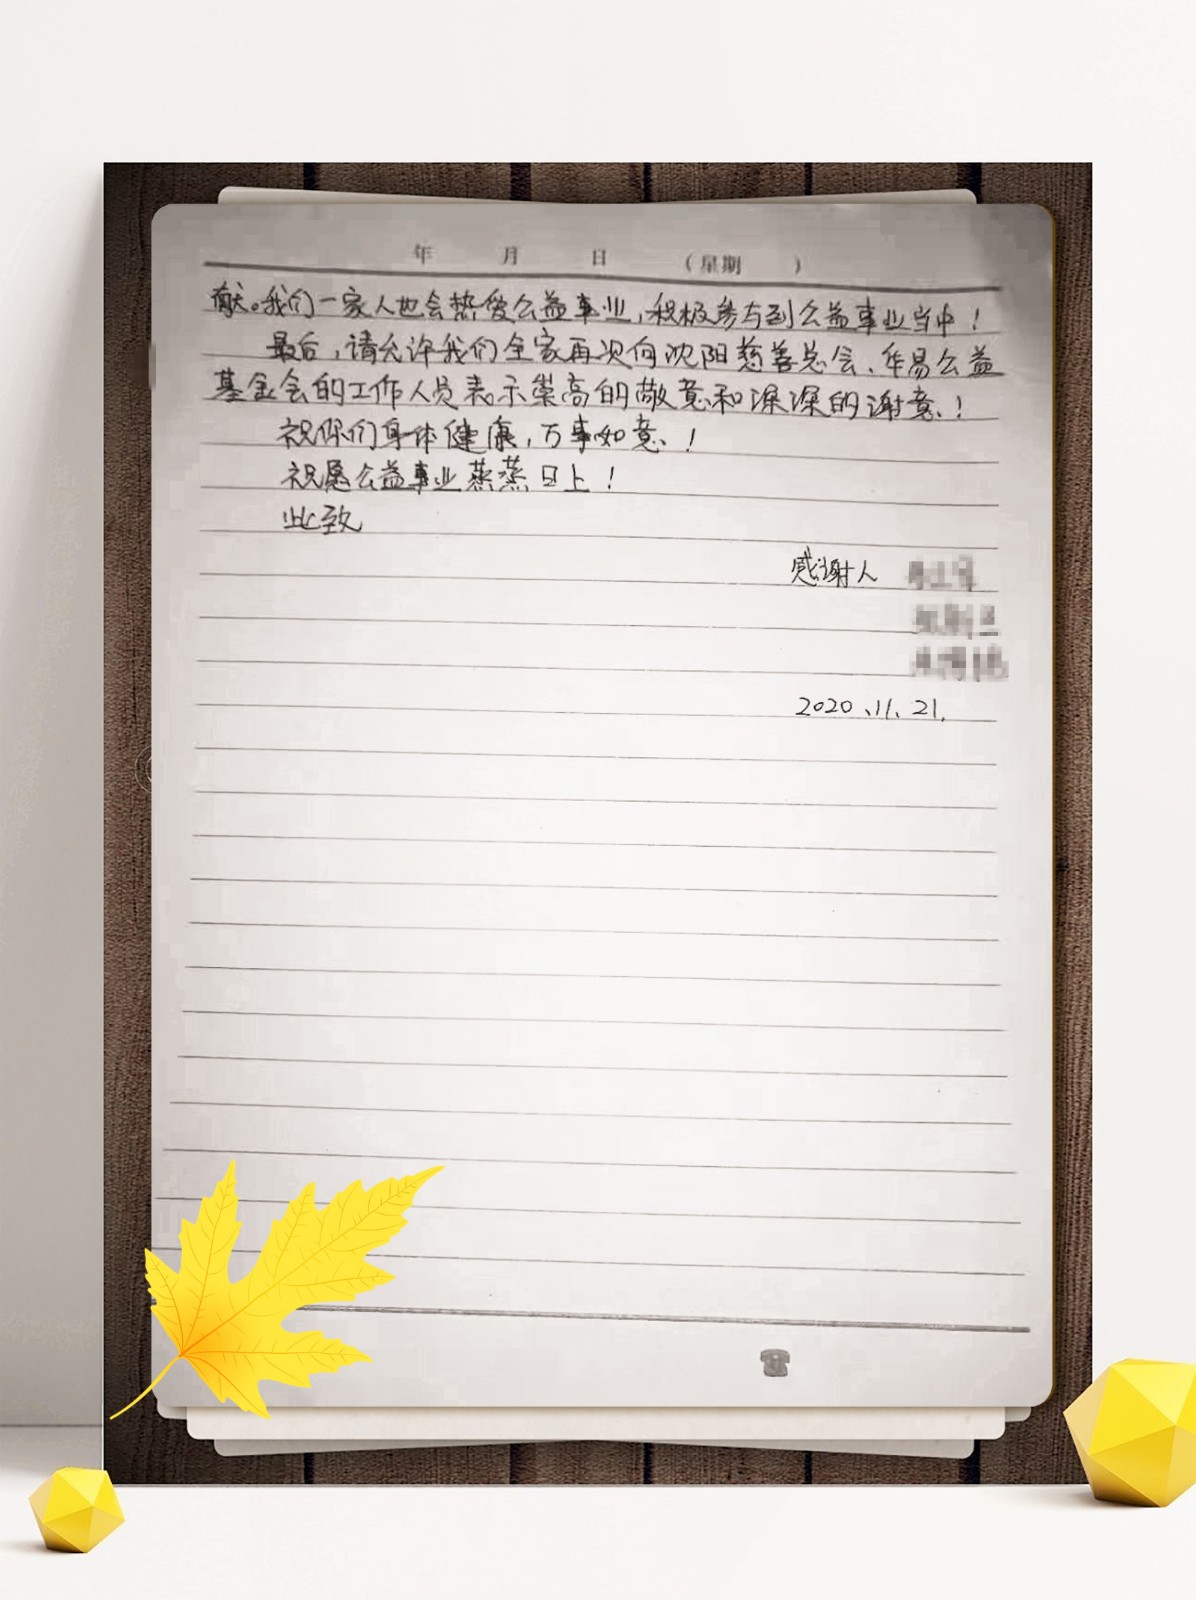 年 月 日 （星期 ）
献。我们一家人也会热爱公益事业,积极参与到公益事业当中！
最后,请允许我们全家再次向沈阳慈善总会、华易公益
基金会的工作人员表示崇高的敬意和深深的谢意！
祝你们身体健康,万事如意！
祝愿公益事业蒸蒸日上！
此致
感谢人
2020、11、21.